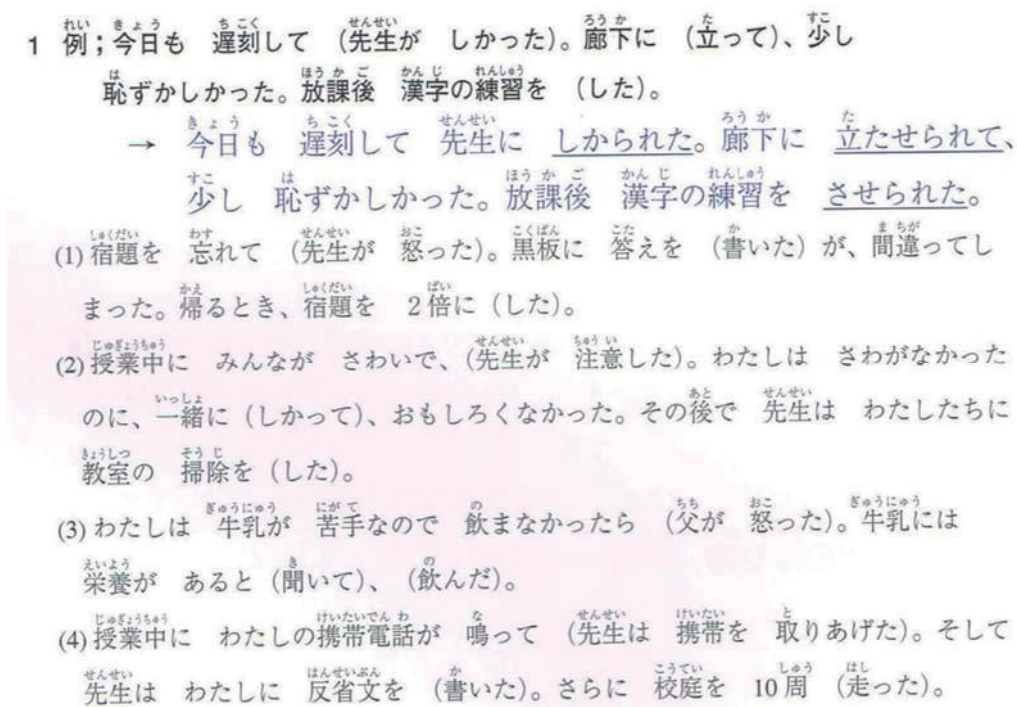 1 例；今日も 遅刻して （先生が しかった）。廊下に （立って）、少し
恥ずかしかった。放課後 漢字の練習を （した）。
→ 今日も 遅刻して 先生に しかられた。廊下に 立たせられて、
少し 恥ずかしかった。放課後 漢字の練習を させられた。
(1) 宿題を 忘れて （先生が 怒った）。黒板に 答えを （書いた）が、間違ってし
まった。帰るとき、宿題を 2倍に（した）。
(2) 授業中に みんなが さわいで、（先生が 注意した）。わたしは さわがなかった
のに、一緒に（しかって）、おもしろくなかった。その後で 先生は わたしたちに
教室の 掃除を（した）。
(3) わたしは 牛乳が 苦手なので 飲まなかったら （父が 怒った）。牛乳には
栄養が あると（聞いて）、（飲んだ）。
(4) 授業中に わたしの携帯電話が 鳴って （先生は 携帯を 取りあげた）。そして
先生は わたしに 反省文を （書いた）。さらに 校庭を 10周 （走った）。